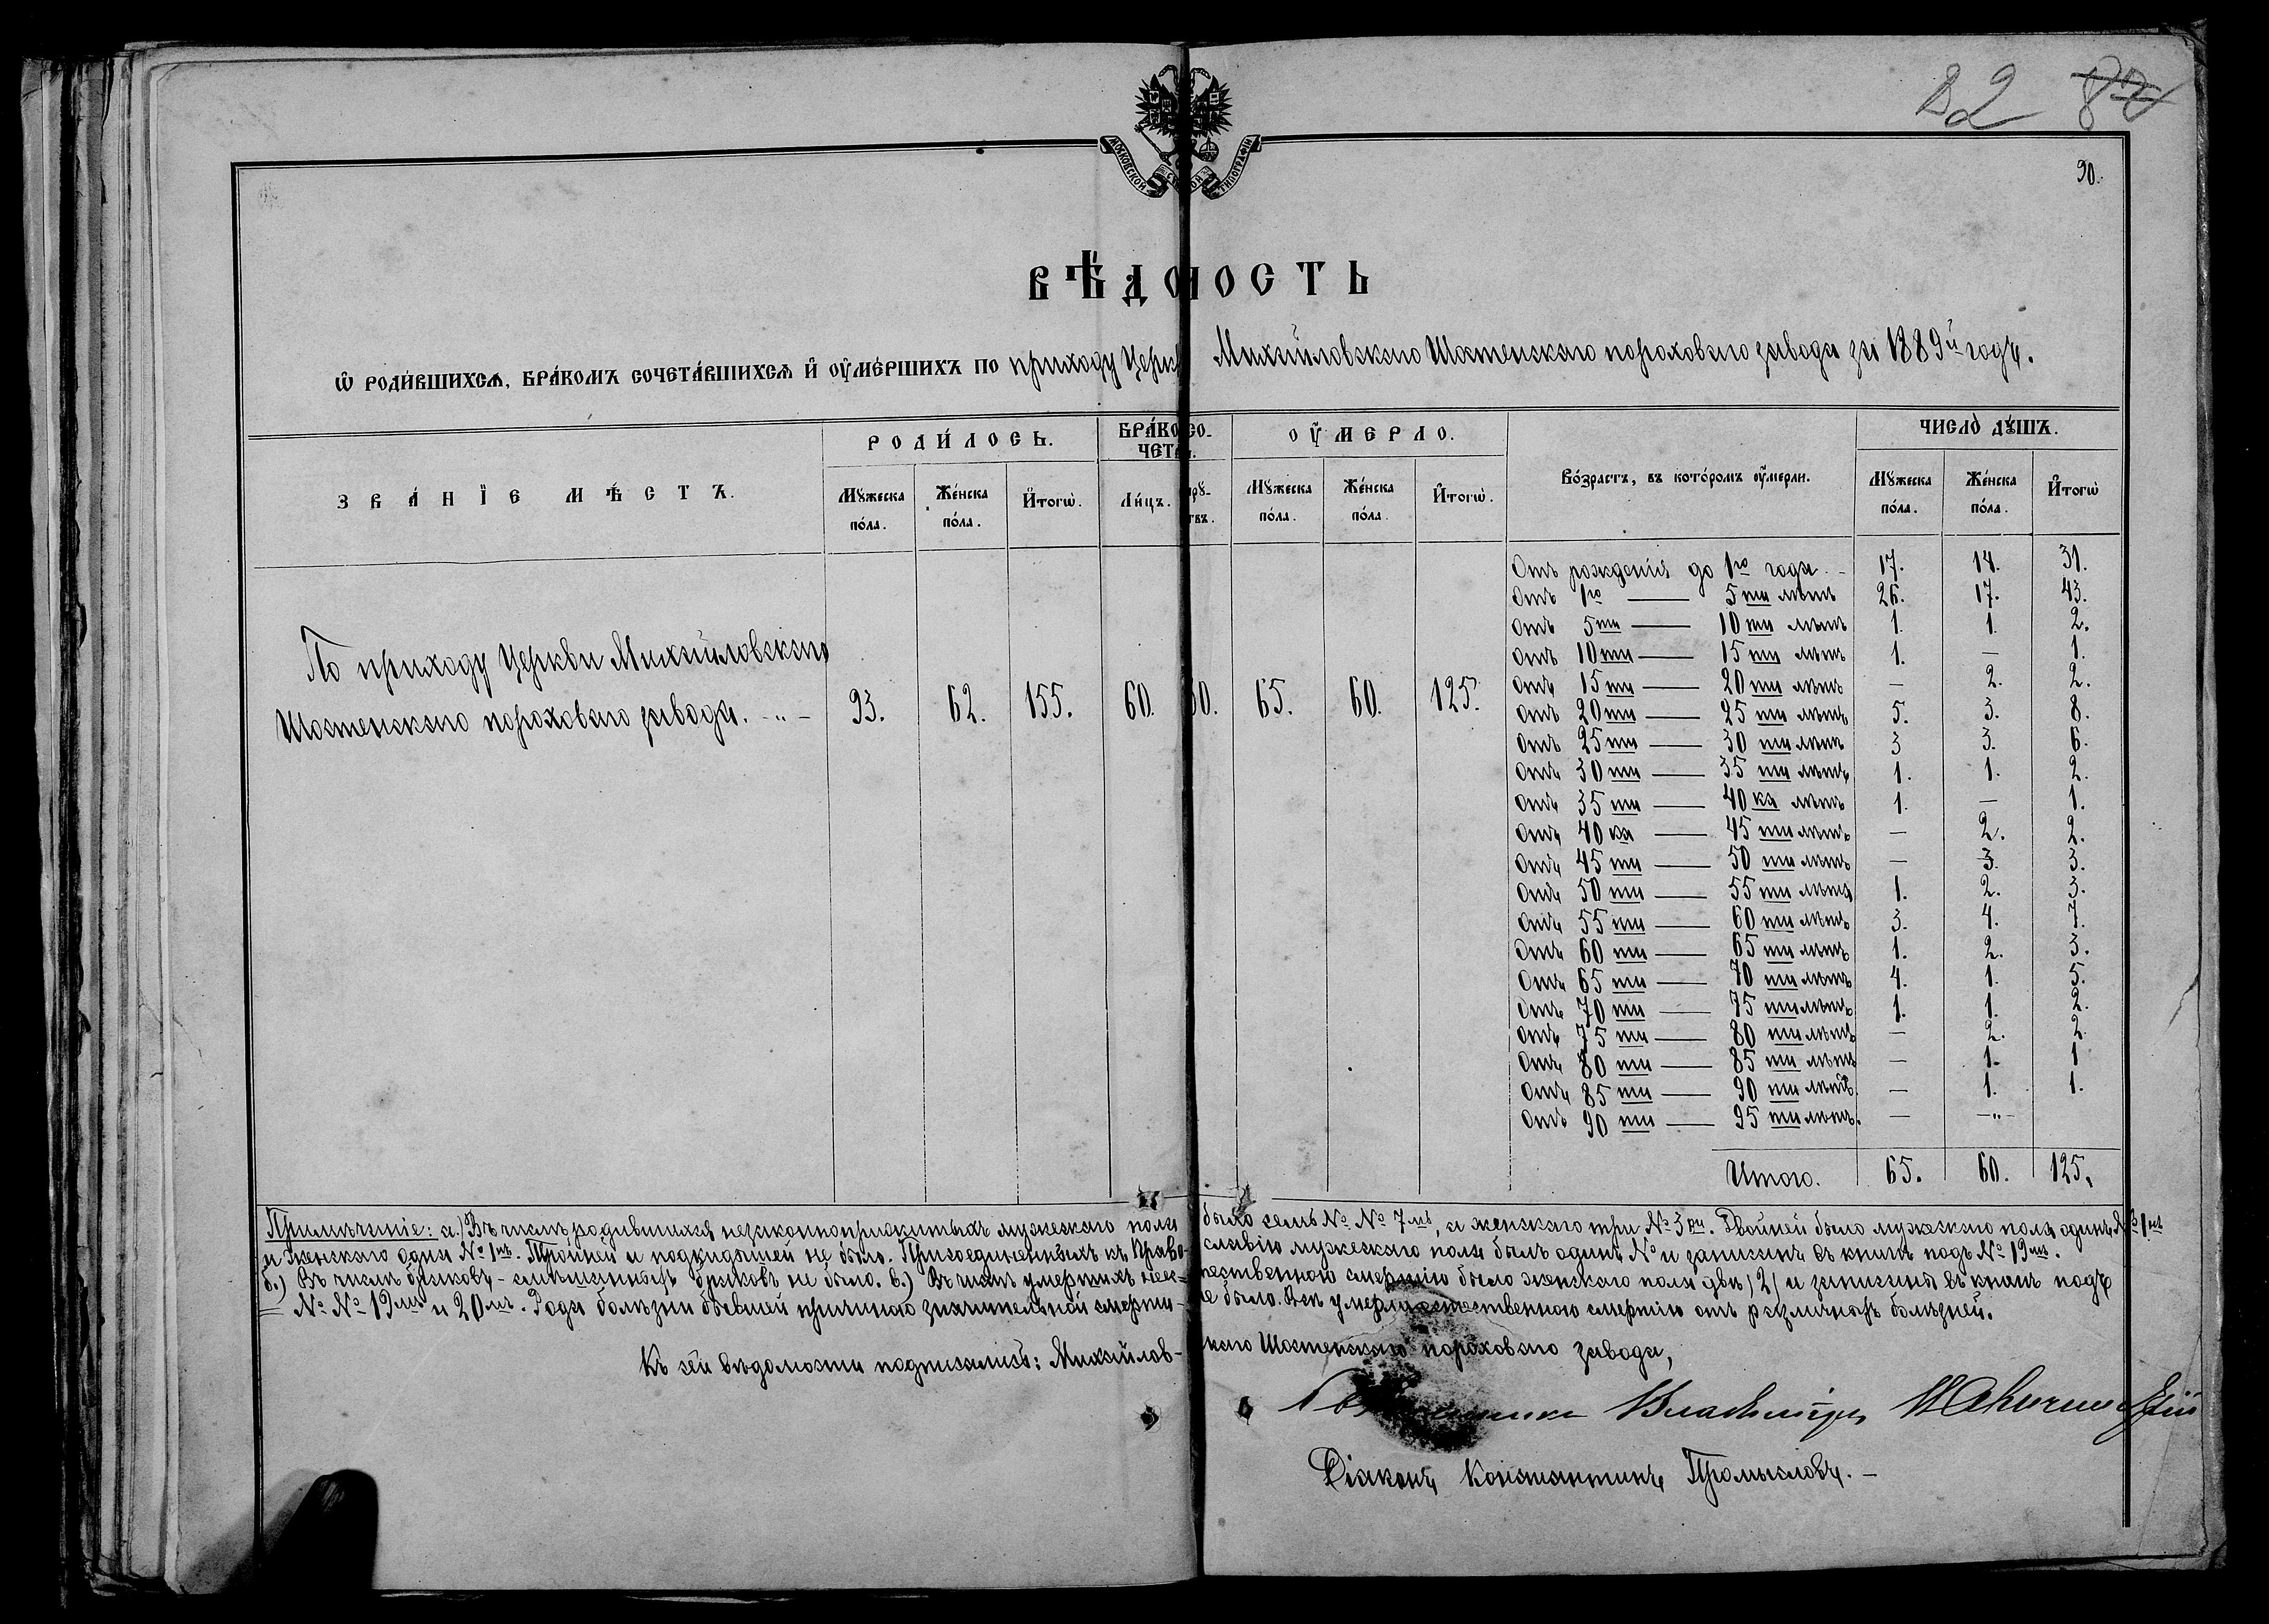 82 87
90.
МОСКОВСКОЙ СѴНОД ТИПОГРАФІИ
ВѢДОМОСТЬ
Ѡ РОДИ́ВШИХСѦ, БРА́КОМЪ СОЧЕТА́ВШИХСѦ И҆ ОУ҆МЕ́РШИХЪ ПО приходу Церкв Михайловскаго Шостенскаго пороховаго завода за 1889й годъ.
ЗВА́НІЕ МѢ́СТЪ.
РОДИ́ЛОСЬ.
БРАКОСО-
ЧЕТА.
ОУ҆МЕРЛО.
Во́зрастъ, въ кото́ромъ оу҆́мерли.
ЧИСЛО̀ ДꙊ́ШЪ.
Мꙋ́жеска по́ла. Же́нска по́ла. И҆тогѡ̀. Ли́цъ. Мꙋ́жеска по́ла. Же́нска по́ла. И҆тогѡ̀. Мꙋ́жеска по́ла. Же́нска по́ла. И҆тогѡ̀
По приходу Церкви Михайловскаго
Шостенскаго пороховаго завода. - „ - 93. 62. 155. 60. 30. 65. 60. 125.
Отъ рожденія до 1го года - 17. 14. 31.
Отъ 1го — 5ти лѣтъ 26. 17. 43.
Отъ 5ти — 10ти лѣтъ 1. 1. 2.
Отъ 10ти — 15ти лѣтъ 1. — 1.
Отъ 15ти — 20ти лѣтъ — 2. 2.
Отъ 20ти — 25ти лѣтъ 5. 3. 8.
Отъ 25ти — 30ти лѣтъ 3 3. 6.
Отъ 30ти — 35ти лѣтъ 1. 1. 2.
Отъ 35ти — 40ка лѣтъ 1. — 1.
Отъ 40ка — 45ти лѣтъ — 2. 2.
Отъ 45ти — 50ти лѣтъ — 3. 3.
Отъ 50ти — 55ти лѣтъ 1. 2. 3.
Отъ 55ти — 60ти лѣтъ 3. 4. 7.
Отъ 60ти — 65ти лѣтъ 1. 2. 3.
Отъ 65ти — 70ти лѣтъ 4. 1. 5.
Отъ 70ти — 75ти лѣтъ 1. 1. 2.
Отъ 75ти — 80ти лѣтъ — 2. 2.
Отъ 80ти — 85ти лѣтъ — 1. 1
Отъ 85ти — 90ти лѣтъ. — 1. 1.
Отъ 90ти — 95ти лѣтъ. — - „ -
Итого. 65. 60. 125.
Примѣчаніе: а.) Въ числѣ родившихся незаконноприжитыхъ мужескаго пола было семь № № 7мь, а женскаго три № 3ри. Двойней было мужескаго пола одинъ № 1нъ
и женскаго одна № 1нъ. Тройней и подкидышей не было. Присоединенныхъ къ Право-славію мужескаго пола былъ одинъ № и записанъ въ книгѣ подъ № 19мъ.
б.) Въ числѣ браковъ - смѣшанныхъ браковъ не было. в.) Въ числѣ умершихъ неес-тественною смертію было женскаго пола двѣ /2/ и записаны въ книгѣ подъ
№ № 19мъ и 20мъ. Рода болѣзни бывшей причиною значительной смерти - не было. Всѣ умерли естественною смертію отъ различныхъ болѣзней.
Къ сей вѣдомости подписались: Михайлов-скаго Шостенскаго пороховаго завода,
Священникъ Владиміръ
Діаконъ Константинъ Промысловъ. -